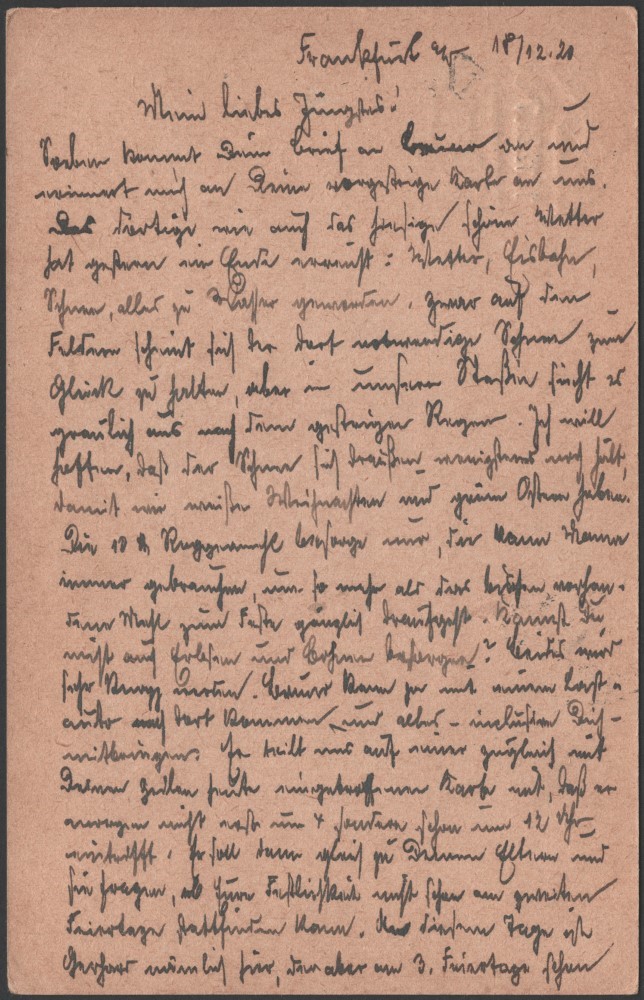 Frankfurt a/ 18/12.20
Mein liebes Jüngstes!
Soeben kommt Dein Brief an Bauer an und
erinnert mich an Deine vorgestrige Karte an uns.
Das dortige wie auch das hiesige schöne Wetter
hat gestern ein Ende erreicht: Wetter, Eisbahn,
Schnee, alles zu Wasser geworden. Zwar auf den
Feldern scheint sich der dort notwendige Schnee zum
Glück zu halten, aber in unseren Straßen sieht es
greulich aus nach dem gestrigen Regen. Ich will
hoffen, daß der Schnee sich draußen wenigstens noch hält,
damit wir weiße Weihnachten und grüne Ostern haben.
Die 10 ℔ Roggenmehl besorge nur, die kann Mama
immer gebrauchen, um so mehr als das bischen vorhan-
dene Mehl zum Feste gänzlich draufgeht. Kannst Du
nicht auch Erbsen und Bohnen besorgen? Beides wird
sehr knapp werden. Bauer kann ja mit einem Last-
auto nach dort kommen und alles - inclusive Dich -
mitbringen. Er teilt uns auf einer zugleich mit
Deinen Zeilen heute eingetroffenen Karte mit, daß er
morgen nicht erst um 4 sondern schon um 12 Uhr
eintrifft. Er soll dann gleich zu Deinen Eltern und
sie fragen, ob Eure Festlichkeit nicht schon am zweiten
Feiertage stattfinden kann. An diesem Tage ist
Gerhard nämlich hier, der aber am 3. Feiertage schon